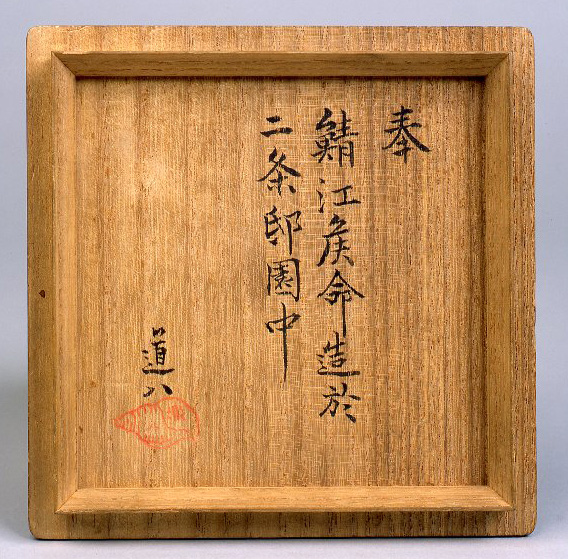 奉
鯖江侯命造於
二条邸園中
道八